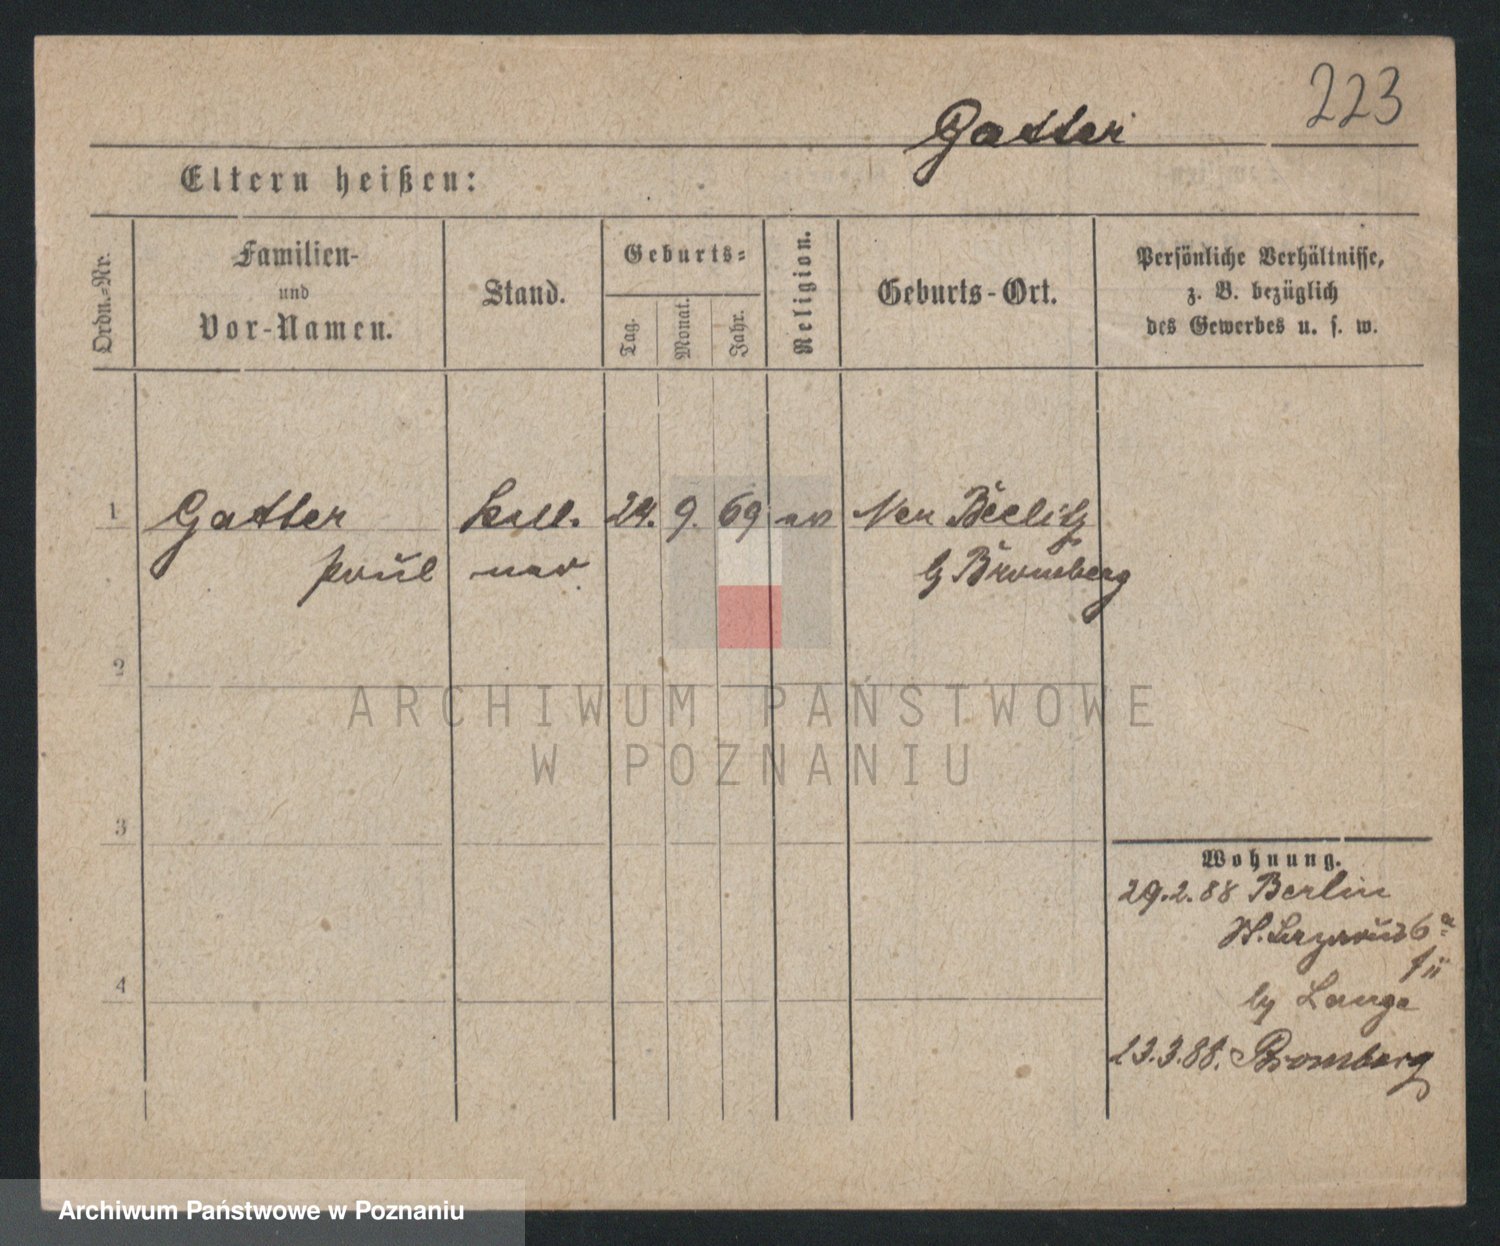 223
Gatter
Eltern heißen:
Ordn.-Nr.
Familien-
und
Vor-Namen.
Stand.
Geburts-
Tag.
Monat.
Jahr.
Religion.
Geburts-Ort.
Persönliche Verhältnisse,
z. B. bezüglich
des Gewerbes u. s. w.
1 Gatter Kell- 24. 9. 69 ev Neu Beelitz
Paul ner b Bromberg
2
ARCHIWUM PAŃSTWOWE
W POZNANIU
3
4
Wohnung.
29.2.88 Berlin
W. Lazarus 6a
by Lange
23.3.88. Bromberg
Archiwum Państwowe w Poznaniu